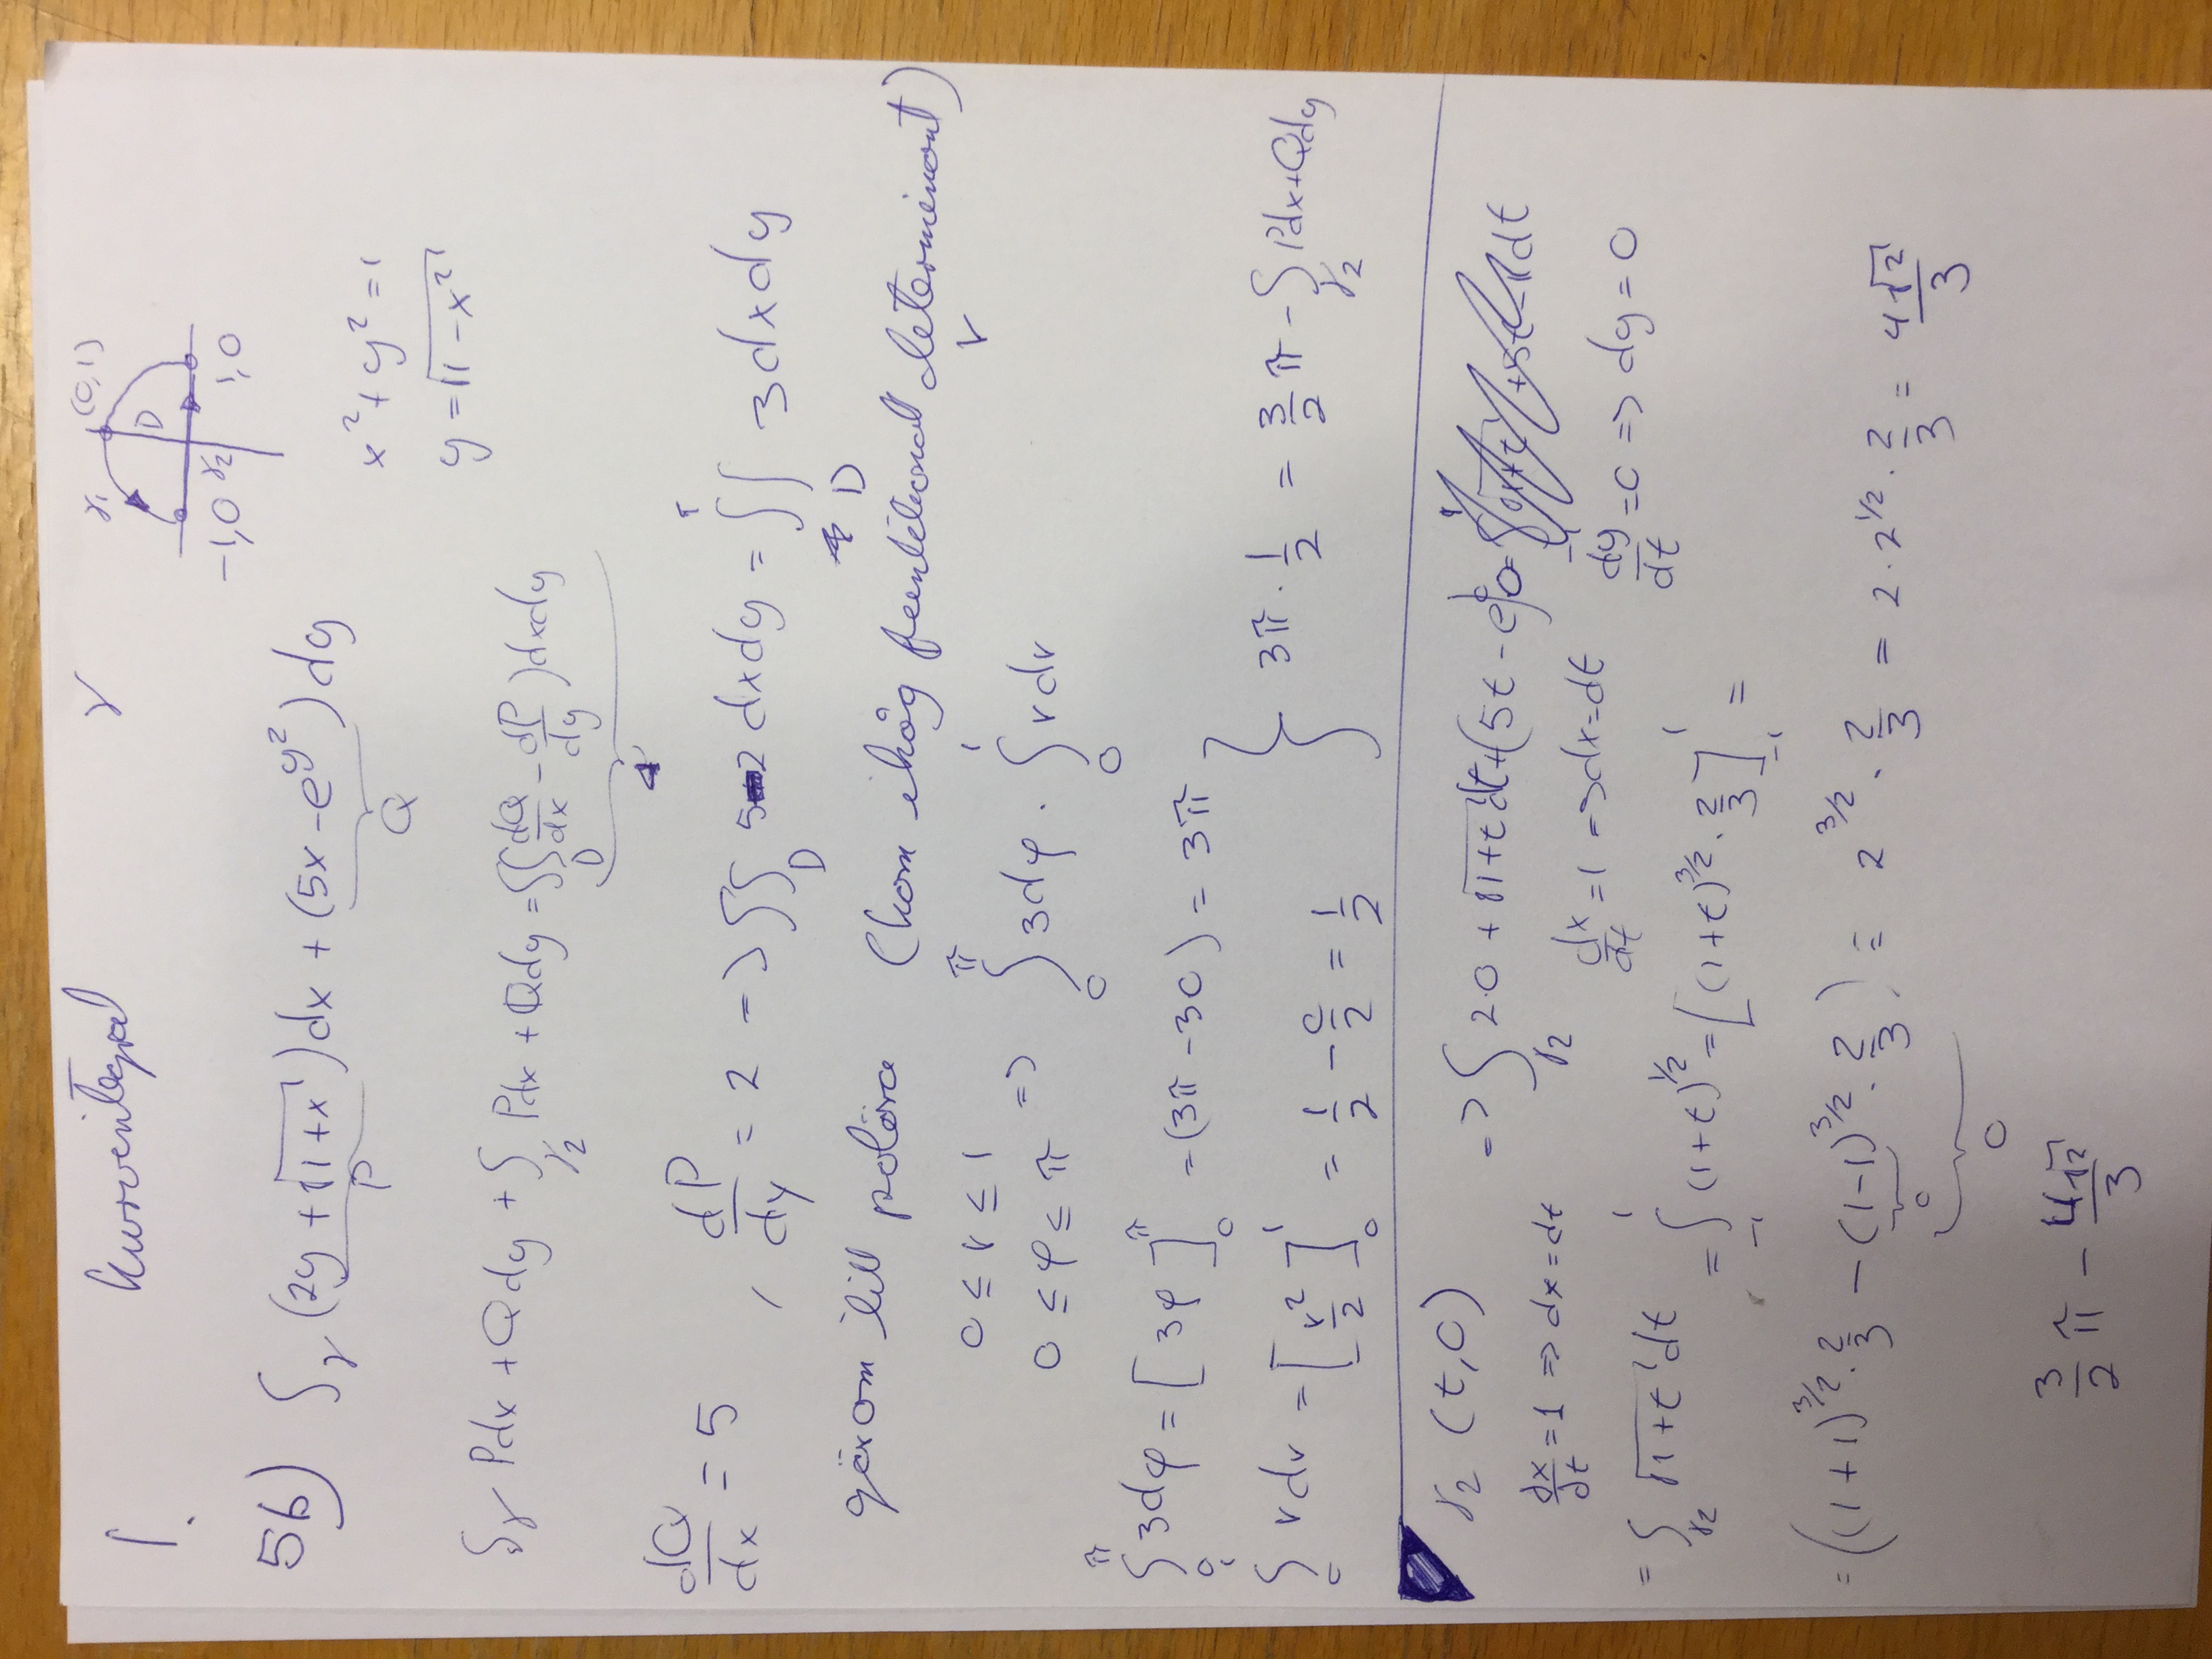 1. Kurvintegral γ
γ₁ (0,1)
D
-1,0 γ₂ 1,0
5b) ∫γ (2y + √(1+x)) dx + (5x - e^(y²)) dy
P Q
x² + y² = 1
y = √(1-x²)
∫γ Pdx + Qdy + ∫γ₂ Pdx + Qdy = ∫∫D (dQ/dx - dP/dy) dxdy
dQ/dx = 5 , dP/dy = 2 => ∫∫D 5-2 dxdy = ∫∫D 3dxdy
gör om till polära (kom ihåg funktional determinant)
r
0 ≤ r ≤ 1
0 ≤ φ ≤ π => ∫₀^π 3dφ · ∫₀^1 rdr
∫₀^π 3dφ = [3φ]₀^π = (3π - 30) = 3π
∫₀^1 rdr = [r²/2]₀^1 = 1/2 - 0/2 = 1/2 } 3π · 1/2 = 3/2 π - ∫γ₂ Pdx+Qdy
γ₂ (t,0) => ∫γ₂ 2·0 + √(1+t) dt + (5t - e⁰)0 =
dx/dt = 1 => dx = dt dx/dt = 1 => dx = dt dy/dt = 0 => dy = 0
= ∫γ₂ √(1+t) dt = ∫₋₁^1 (1+t)^(1/2) = [(1+t)^(3/2) · 2/3]₋₁^1 =
= ((1+1)^(3/2) · 2/3 - (1-1)^(3/2) · 2/3) = 2^(3/2) · 2/3 = 2 · 2^(1/2) · 2/3 = 4√2/3
0
0
3/2 π - 4√2/3